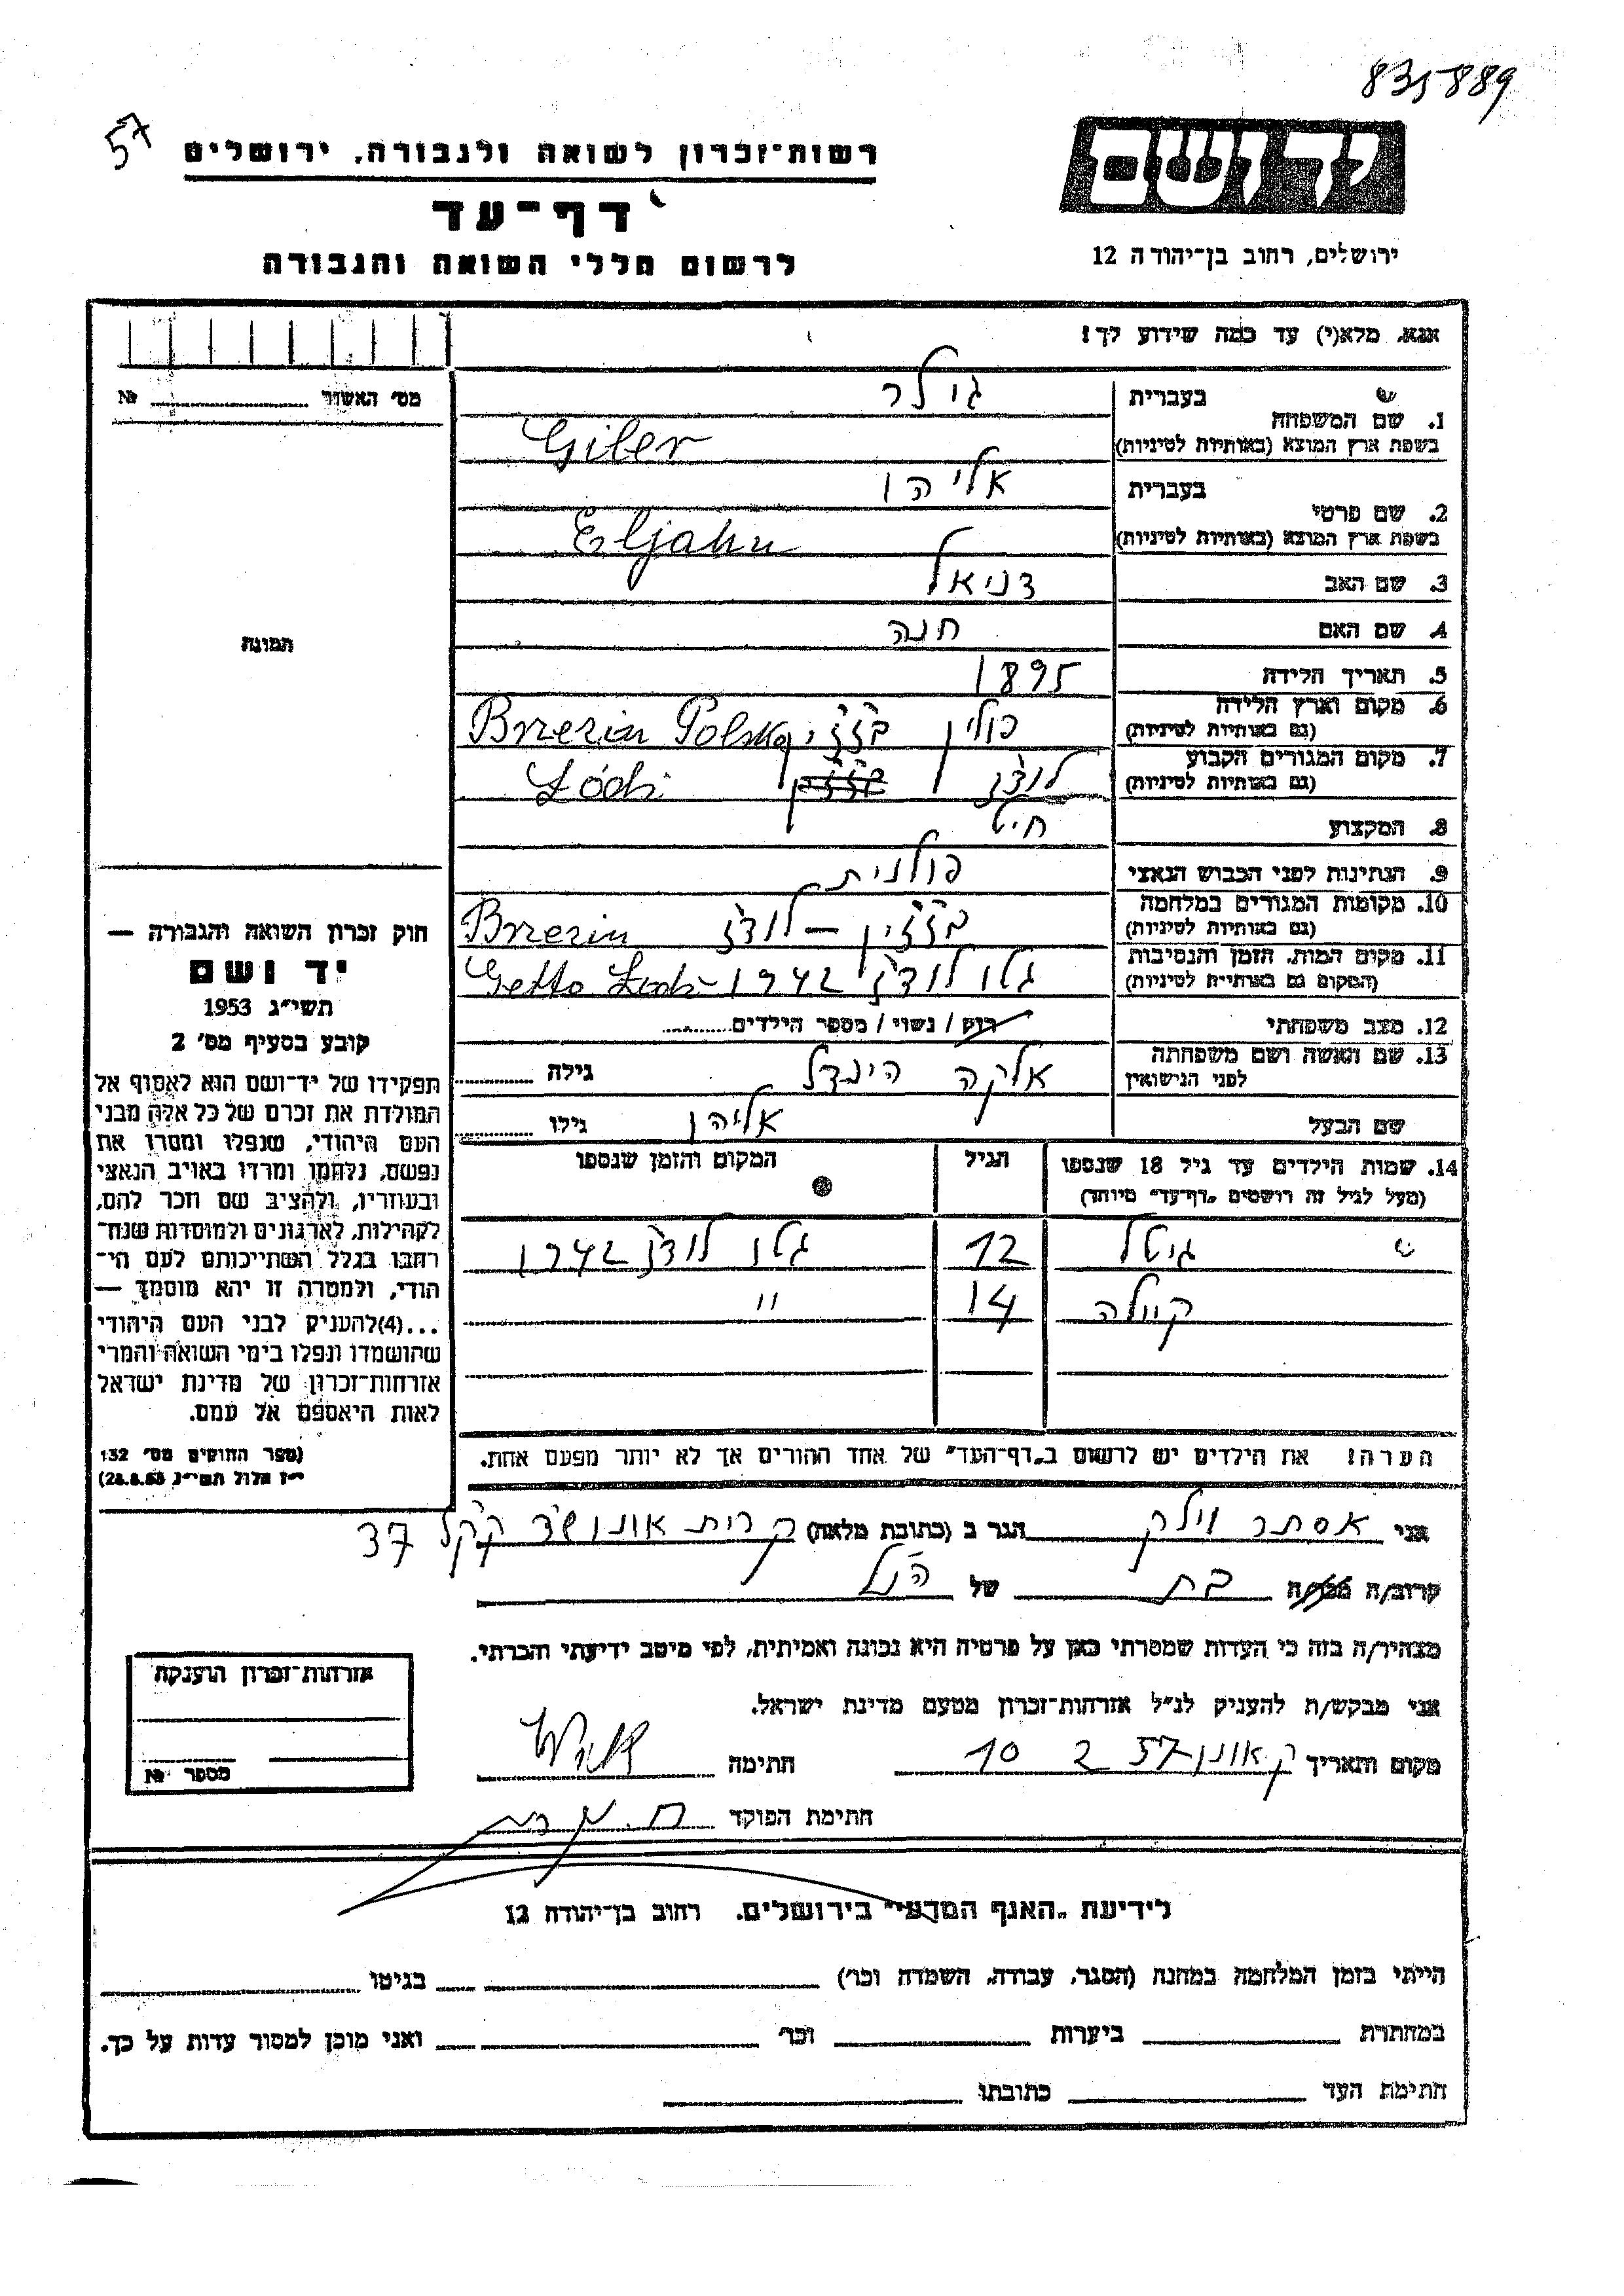 835889
57
יד ושם
רשות-זכרון לשואה ולגבורה, ירושלים
דף-עד
לרשום חללי השואה והגבורה
ירושלים, רחוב בן-יהודה 12
אנא, מלא(י) עד כמה שידוע לך!
מס' האשור № 
1. שם המשפחה
בעברית גילר
בשפת ארץ המוצא (באותיות לטיניות) Giler
2. שם פרטי
בעברית אליהו
בשפת ארץ המוצא (באותיות לטיניות) Eljahu
3. שם האב דניאל
4. שם האם חנה
5. תאריך הלידה 1895
6. מקום וארץ הלידה פולין
(גם באותיות לטיניות) Brzezin Polska
7. מקום המגורים הקבוע לודז
(גם באותיות לטיניות) Łódź
8. המקצוע חיט
9. הנתינות לפני הכבוש הנאצי פולנית
10. מקומות המגורים במלחמה בז'ז'ין – לודז'
(גם באותיות לטיניות) Brzezin
11. מקום המות, הזמן והנסיבות גטו לודז' 1942
(המקום גם באותיות לטיניות) Getto Łodz
12. מצב משפחתי רוק / נשוי / מספר הילדים
13. שם האשה ושם משפחתה אלקה הינדל גילה
לפני הנישואין
שם הבעל אליהו גילו
14. שמות הילדים עד גיל 18 שנספו הגיל המקום והזמן שנספו
(מעל לגיל זה רושמים "דף-עד" מיוחד)
גיטל 12 גטו לודז 1942
קיילה 14 "
הערה! את הילדים יש לרשום ב"דף-העד" של אחד ההורים אך לא יותר מפעם אחת.
תמונה
חוק זכרון השואה והגבורה —
יד ושם
תשי"ג 1953
קובע בסעיף מס' 2
תפקידו של יד-ושם הוא לאסוף אל
המולדת את זכרם של כל אלה מבני
העם היהודי, שנפלו ומסרו את
נפשם, נלחמו ומרדו באויב הנאצי
ובעוזריו, ולהציב שם וזכר להם,
לקהילות, לארגונים ולמוסדות שנח-
רבו בגלל השתייכותם לעם הי-
הודי, ולמטרה זו יהא מוסמך —
...(4)להעניק לבני העם היהודי
שהושמדו ונפלו בימי השואה והמרי
אזרחות-זכרון של מדינת ישראל
לאות היאספם אל עמם.
(ספר החוקים מס' 132
י"ז אלול תשי"ג 28.8.53)
אני אסתר וילק הגר ב (כתובת מלאה) קרית אונו שד ק'ק'ל 37
קרוב/ה מכר/ה בת של הנ"ל
מצהיר/ה בזה כי העדות שמסרתי כאן על פרטיה היא נכונה ואמיתית, לפי מיטב ידיעתי והכרתי.
אני מבקש/ת להעניק לנ"ל אזרחות-זכרון מטעם מדינת ישראל.
מקום ותאריך ק אונו 57 2 10 חתימה Wilk
חתימת הפוקד
אזרחות-זכרון הוענקה
מספר №
לידיעת "האגף המדעי" בירושלים. רחוב בן-יהודה 12
הייתי בזמן המלחמה במחנה (הסגר, עבודה, השמדה וכו') בגיטו
במחתרת ביערות וכו' ואני מוכן למסור עדות על כך.
חתימת העד כתובתו